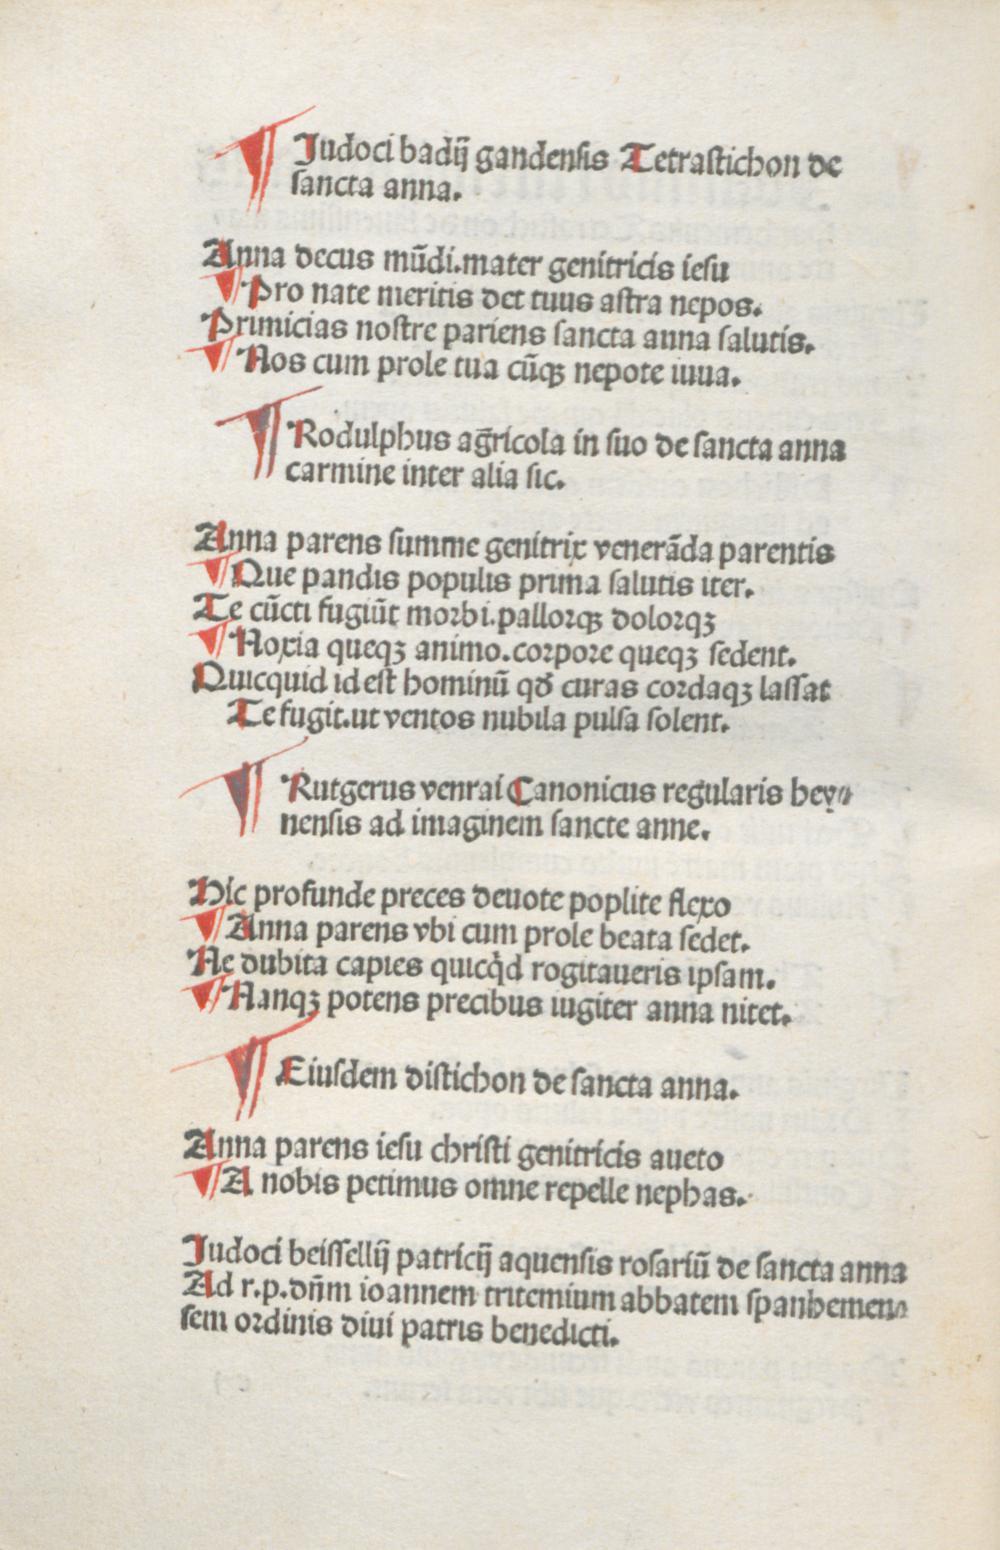 ¶ Judoci badij gandensis Tetrastichon de
sancta anna.
Anna decus mūdi.mater genitricis iesu
¶ Pro nate meritis det tuus astra nepos.
Primicias nostre pariens sancta anna salutis.
¶ Nos cum prole tua cūqꝫ nepote iuua.
¶ Rodulphus ag̃ricola in suo de sancta anna
carmine inter alia sic.
Anna parens summe genitrix venerāda parentis
¶ Que pandis populis prima salutis iter.
Te cūcti fugiūt morbi.pallorqꝫ dolorqꝫ
¶ Noxia queqꝫ animo.corpore queqꝫ sedent.
Quicquid id est hominū qđ curas cordaqꝫ lassat
Te fugit.ut ventos nubila pulsa solent.
¶ Rutgerus venrai Canonicus regularis hey⸗
nensis ad imaginem sancte anne.
Hic profunde preces deuote poplite flexo
¶ Anna parens vbi cum prole beata sedet.
Ne dubita capies quicq̇d rogitaueris ipsam.
¶ Nanqꝫ potens precibus iugiter anna nitet.
¶ Eiusdem distichon de sancta anna.
Anna parens iesu christi genitricis aueto
¶ A nobis petimus omne repelle nephas.
Judoci beissellij patricij aquensis rosariū de sancta anna
Ad r.p.dn̄m ioannem tritemium abbatem spanhemen⸗
sem ordinis diui patris benedicti.